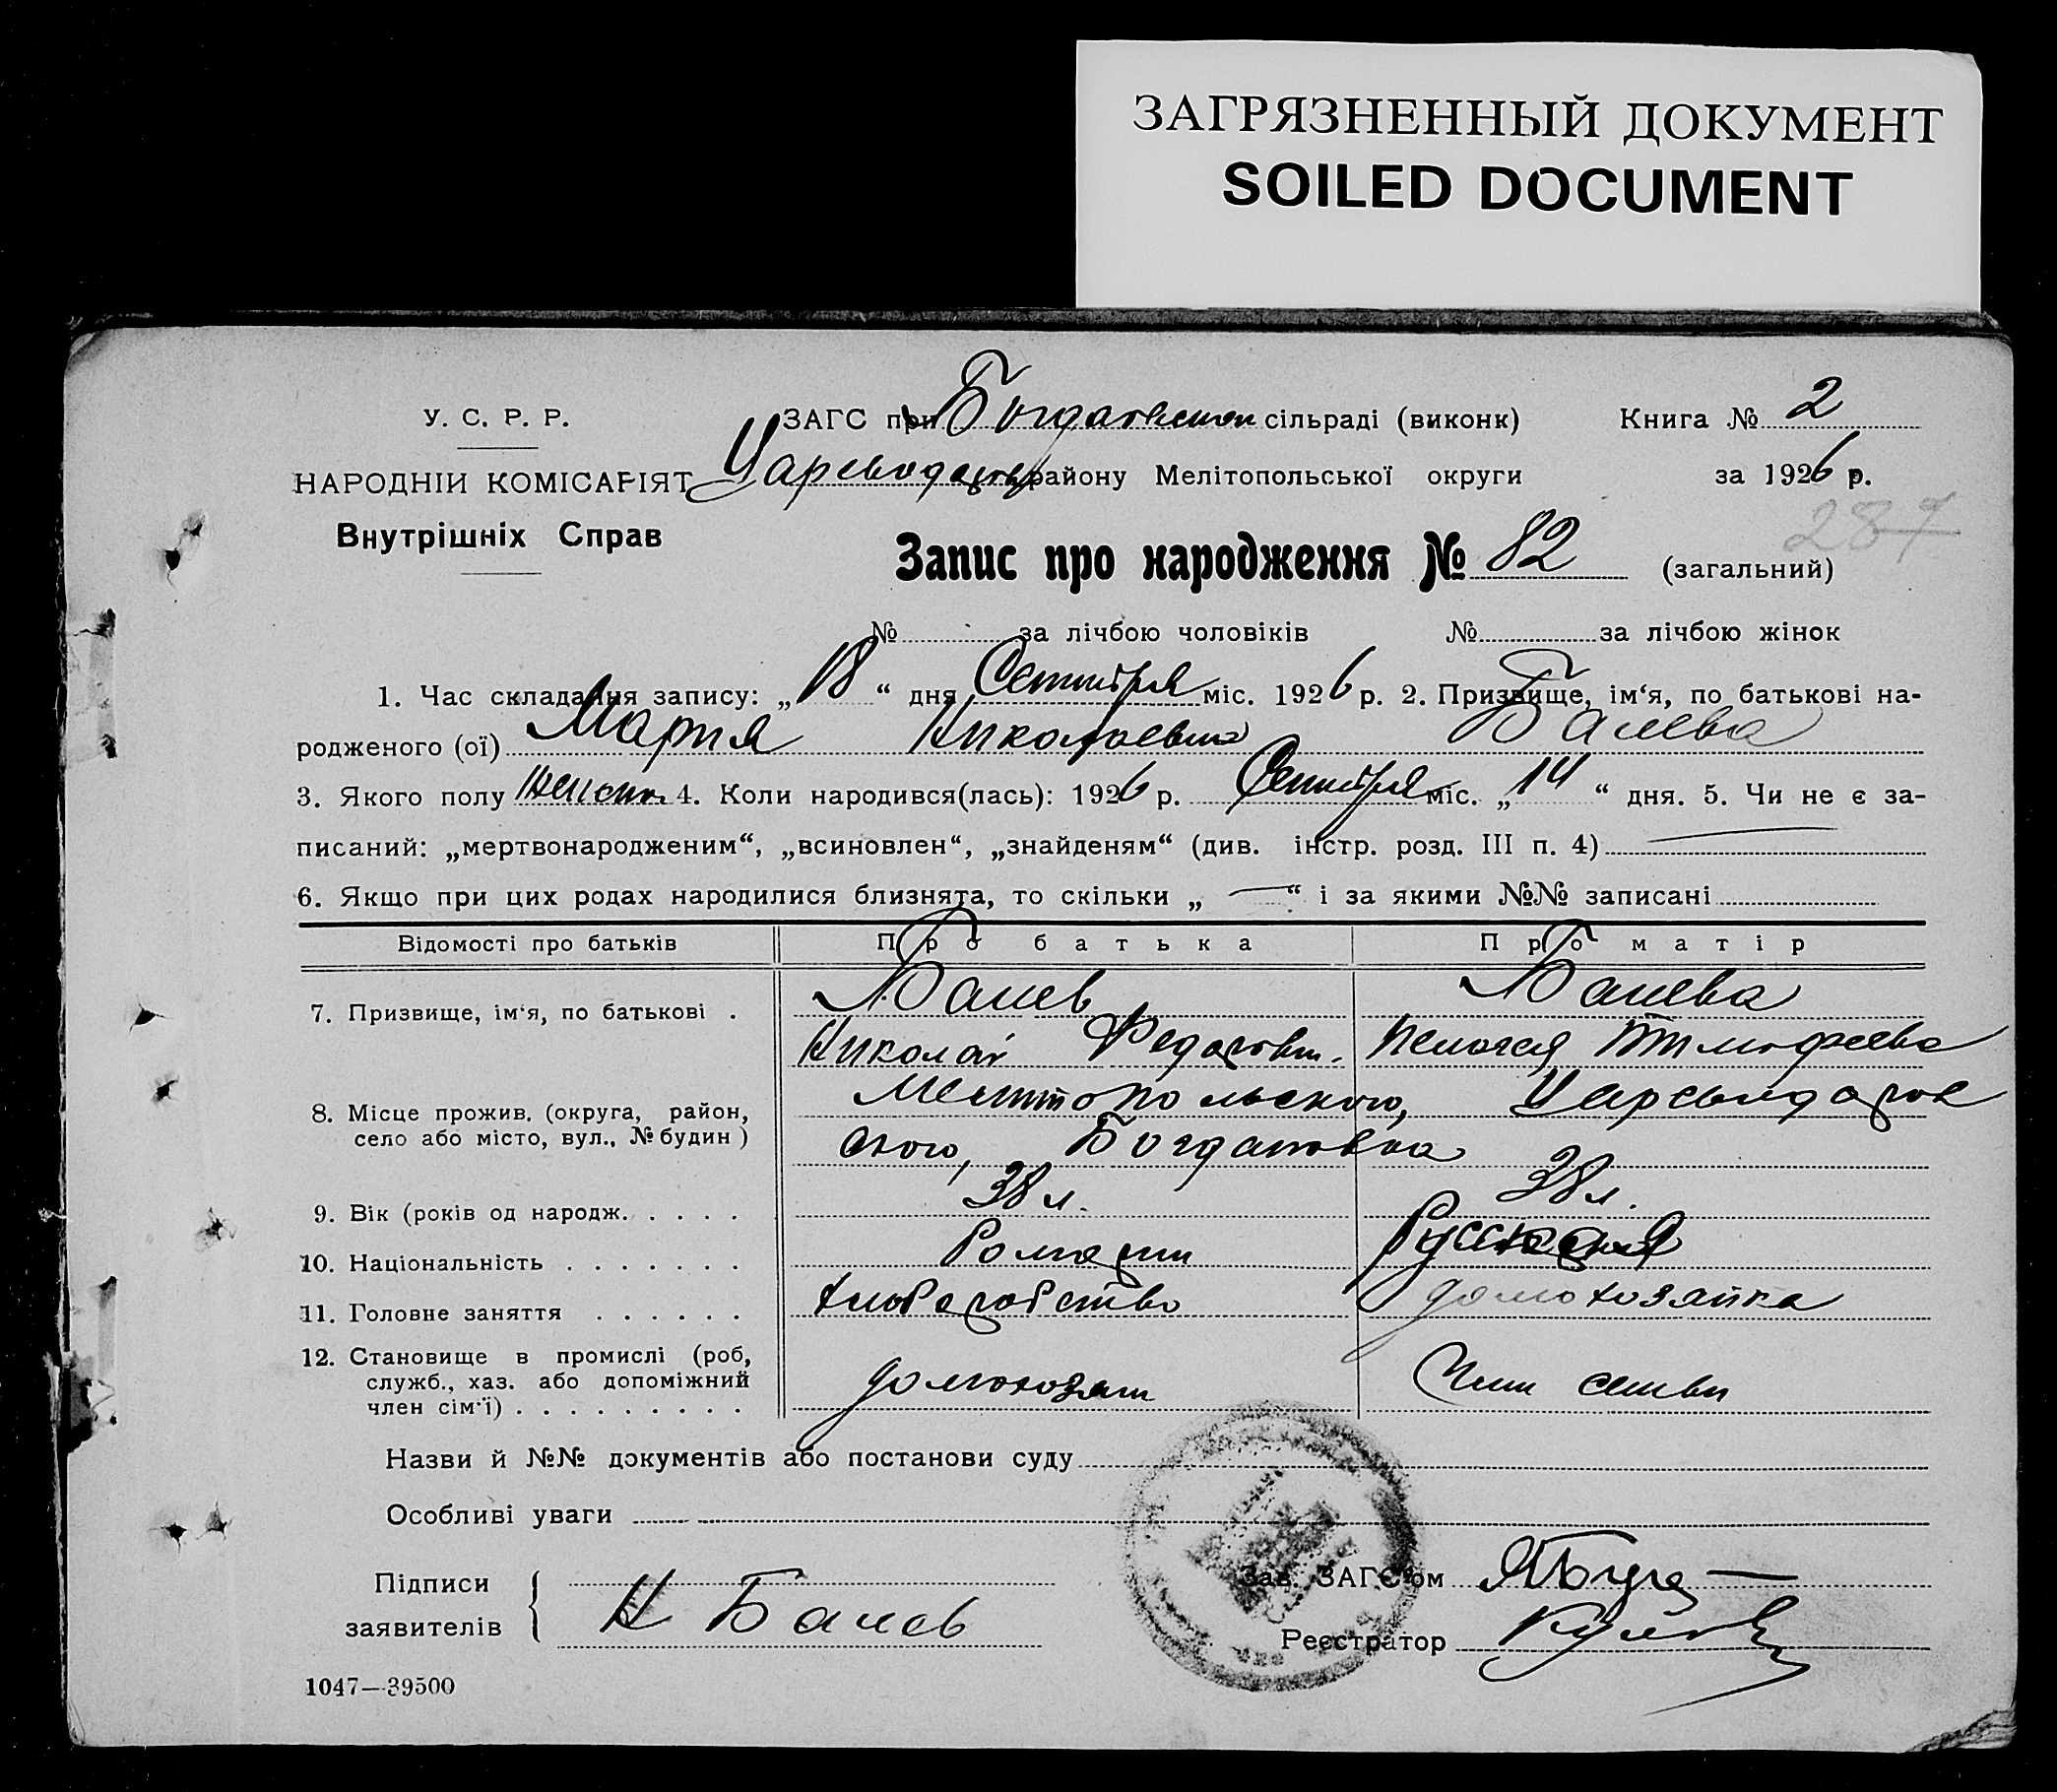 ЗАГРЯЗНЕННЫЙ ДОКУМЕНТ
SOILED DOCUMENT
У. С. Р. Р.
НАРОДНІЙ КОМІСАРІЯТ
Внутрішніх Справ
ЗАГС при Богдановском сільраді (виконк)
району Мелітопольської округи
Книга № 2
за 1926 р.
287
Запис про народження № 82 (загальний)
№ за лічбою чоловіків № за лічбою жінок
1. Час складання запису: „18“ дня Сентября міс. 1926 р. 2. Призвище, ім‘я, по батькові на-
родженого (ої) Мария Николаевна Балева
3. Якого полу женск. 4. Коли народився(лась): 1926 р. Сентября міс. „14“ дня. 5. Чи не є за-
писаний: „мертвонародженим“, „всиновлен“, „знайденям“ (див. інстр. розд. III п. 4) —
6. Якщо при цих родах народилися близнята, то скільки „ — “ і за якими №№ записані
Відомості про батьків Про батька Про матір
7. Призвище, ім‘я, по батькові . Балев Балева
Николай Федоров. Пелагея Тимофеева
8. Місце прожив. (округа, район, Мелитопольского, Цареводаров
село або місто, вул., № будин) ского, Богдановка
9. Вік (років од народж. . . . . 38 л. 38 л.
10. Національність . . . . . . . Русская
11. Головне заняття . . . . . . хлеборобство домохозяйка
12. Становище в промислі (роб,
служб., хаз. або допоміжний домохозяин Член семьи
член сім‘ї) . . . . . . . . .
Назви й №№ документів або постанови суду
Особливі уваги
Підписи
заявителів
Н Балев
Зав. ЗАГС‘ом
Реєстратор
1047—39500